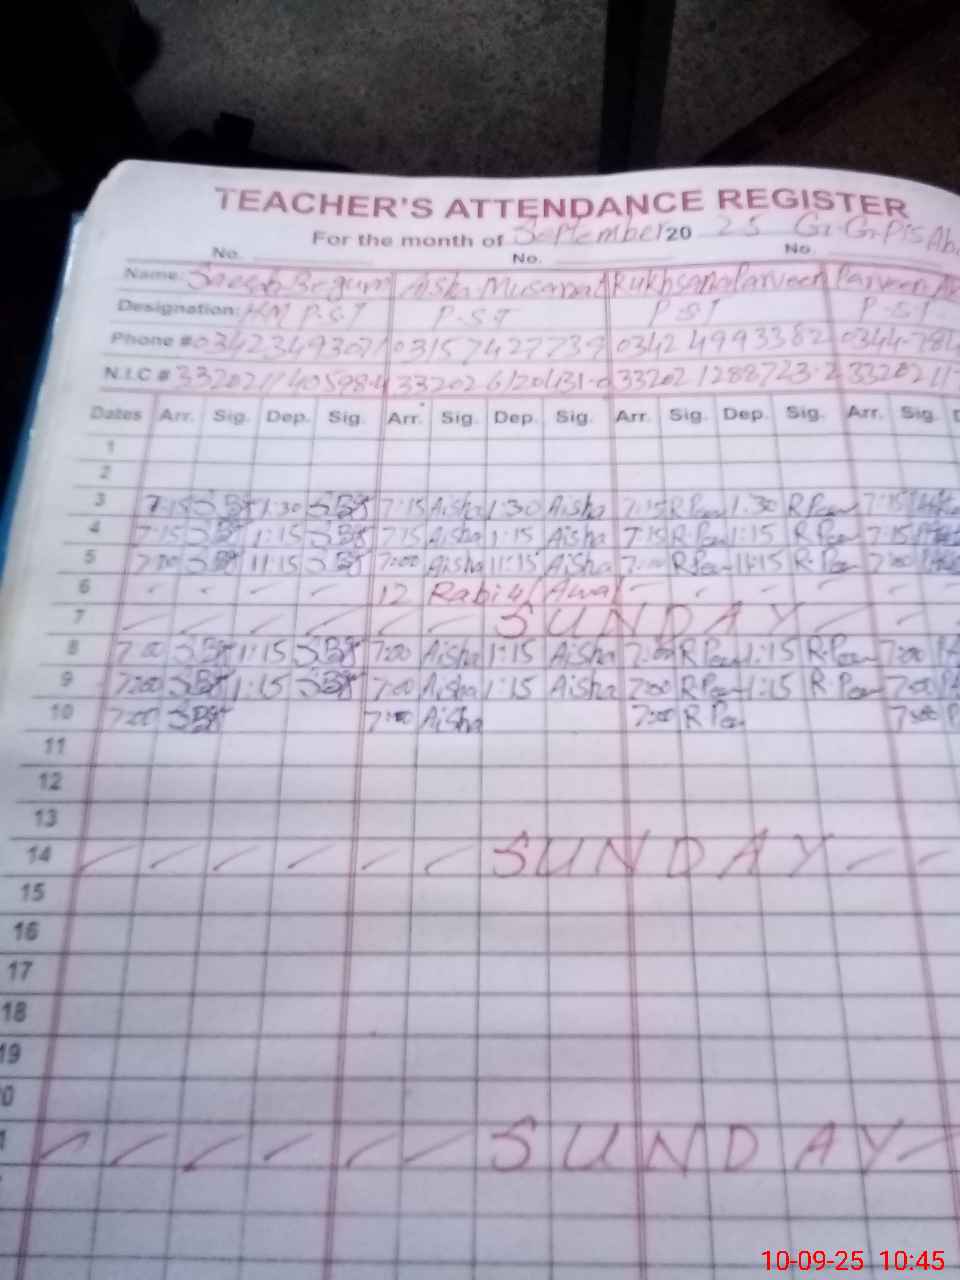 TEACHER'S ATTENDANCE REGISTER
For the month of September 20 25 G.G.P/S
No. No. No.
Name: Begum Aisha Musarrat Rukhsana Parveen Parveen
Designation: HM P.S.T P-S.T P-S.T P-S.T
Phone # 03423493071 03157427739 0342 4993382 0344-781
N.I.C # 33202 33202 33202 1288723-2 33202
Dates Arr. Sig. Dep. Sig. Arr. Sig. Dep. Sig. Arr. Sig. Dep. Sig. Arr. Sig. D
1
2
3 7:15 1:30 7:15 Aisha 1:30 Aisha 7:15 R Peen 1:30 R Peen 7:15
4 7:15 1:15 7:15 Aisha 1:15 Aisha 7:15 R Peen 1:15 R Peen 7:15
5 7:00 11:15 7:00 Aisha 11:15 Aisha 7:00 R Peen 11:15 R.Peen 7:00
6 12 Rabi ul Awal
7 SUNDAY
8 7:00 1:15 7:00 Aisha 1:15 Aisha 7:00 R Peen 1:15 R.Peen 7:00
9 7:00 1:15 7:00 Aisha 1:15 Aisha 7:00 R Peen 1:15 R Peen 7:00
10 7:00 7:00 Aisha 7:00 R Peen 7:00
11
12
13
14 SUNDAY
15
16
17
18
19
0
1 SUNDAY
10-09-25 10:45